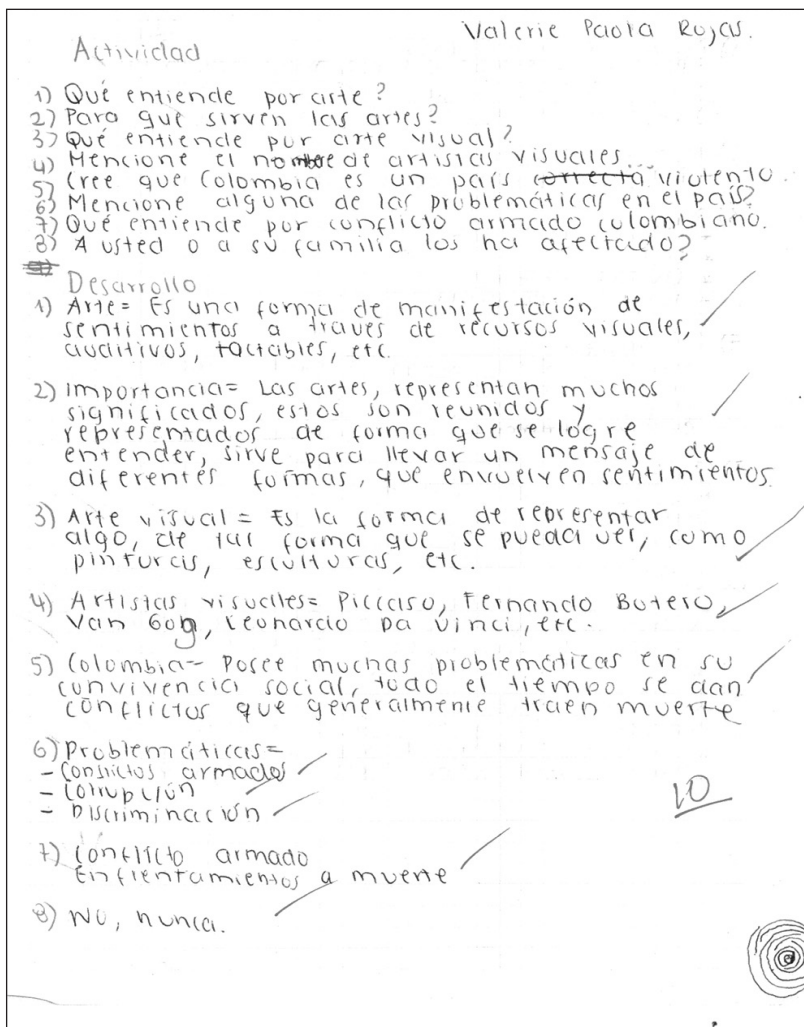 Valerie Paola Rojas.
Actividad
1) Qué entiende por arte?
2) Para que sirven las artes?
3) Qué entiende por arte visual?
4) Mencione el nombre de artistas visuales...
5) Cree que Colombia es un país correcta violento.
6) Mencione alguna de las problemáticas en el país?
7) Qué entiende por conflicto armado colombiano.
8) A usted o a su familia los ha afectado?
Desarrollo
1) Arte= Es una forma de manifestación de
sentimientos a traves de recursos visuales,
auditivos, tactables, etc.
2) Importancia= Las artes, representan muchos
significados, estos son reunidos y
representados de forma que se logre
entender, sirve para llevar un mensaje de
diferentes formas, que envuelven sentimientos
3) Arte visual= Es la forma de representar
algo, de tal forma que se pueda ver, como
pinturas, esculturas, etc.
4) Artistas visuales= Piccaso, Fernando Botero,
Van Gog, Leonardo Da Vinci, etc.
5) Colombia- Posee muchas problemáticas en su
convivencia social, todo el tiempo se dan
conflictos que generalmente traen muerte
6) Problemáticas=
- Conflictos armados
- Corrupción
- Discriminación
10
7) Conflicto armado
Enfrentamientos a muerte
8) No, nunca.